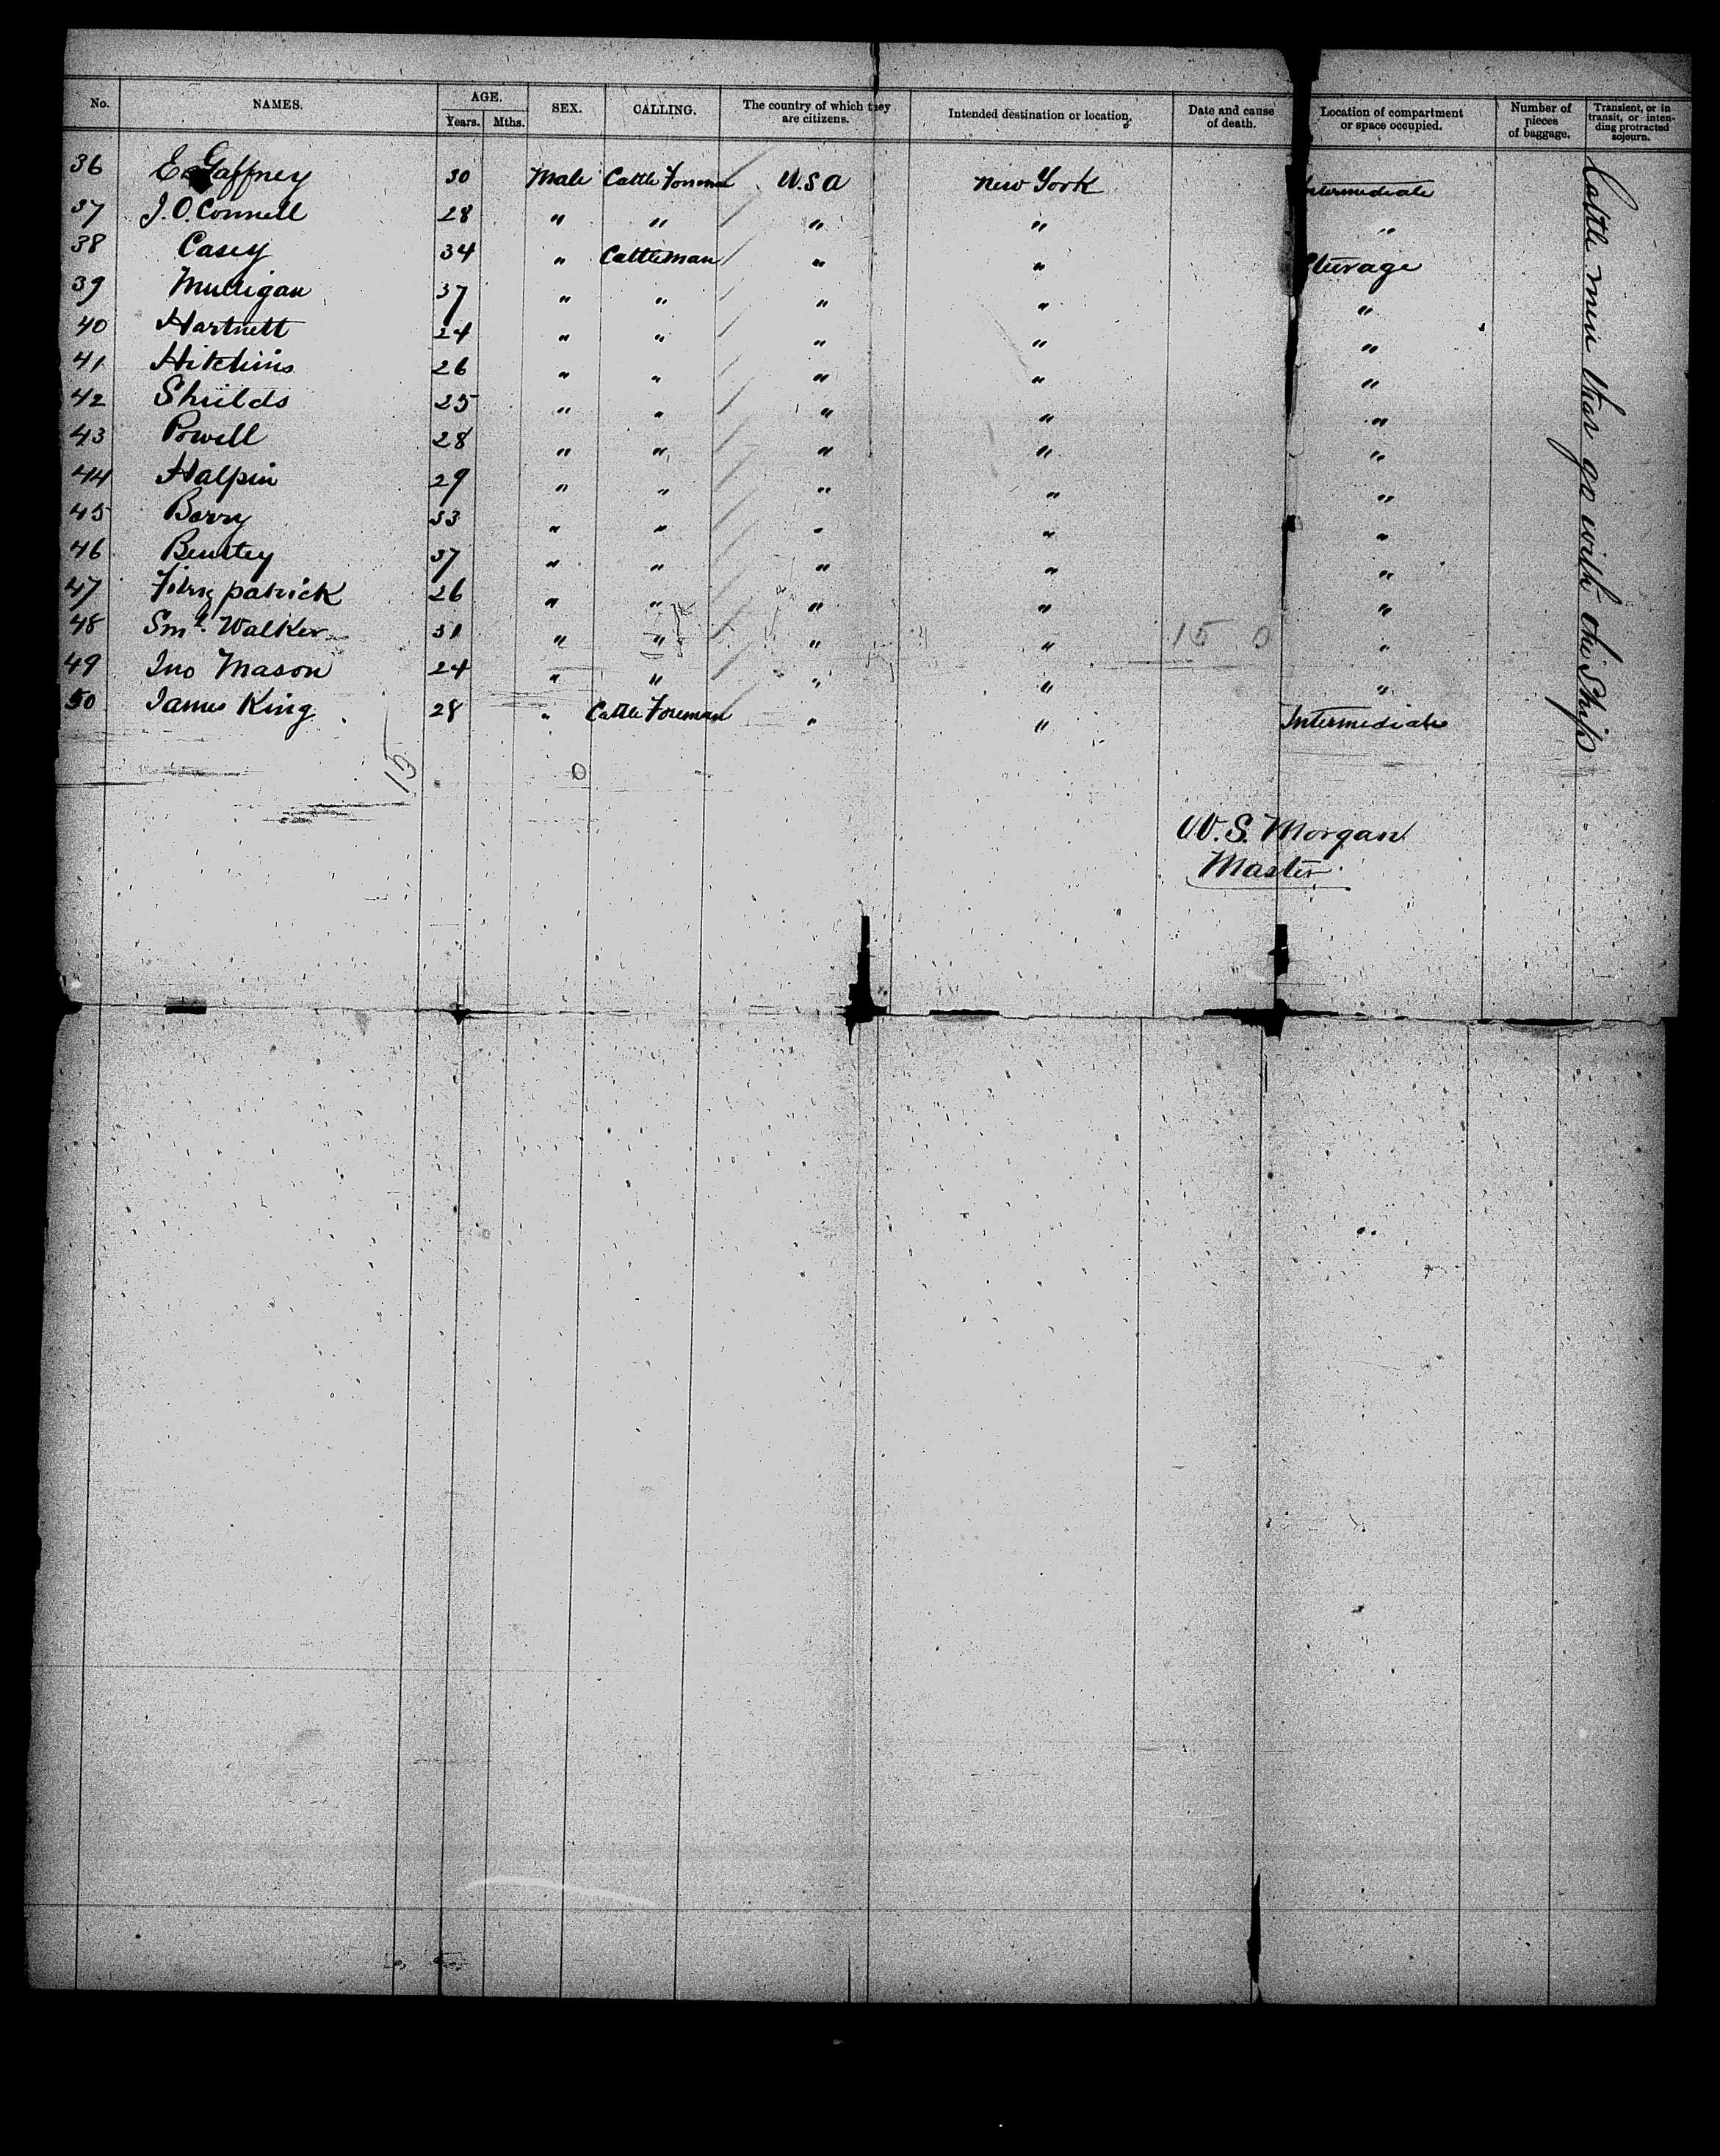 No. NAMES. AGE. Years. Mths. SEX. CALLING. The country of which they are citizens. Intended destination or location. Date and cause of death. Location of compartment or space occupied. Number of pieces of baggage. Transient, or in transit, or intending protracted sojourn.
36 E Gaffney 30 Male Cattle Foreman U.S.A New York Intermediate
37 J. O. Connell 28 " " " " "
38 Casey 34 " Cattleman " " Steerage
39 Mulligan 37 " " " " "
40 Hartnett 24 " " " " "
41 Hitchins 26 " " " " "
42 Shields 25 " " " " "
43 Powell 28 " " " " "
44 Halpin 29 " " " " "
45 Barry 33 " " " " "
46 37 " " " " "
47 patrick 26 " " " " "
48 Sml. Walker 31 " " " " 15 0 "
49 Jno Mason 24 " " " " "
50 James King 28 " Cattle Foreman " " Intermediate
Cattle men that go with the Ships
15 0
W. S. Morgan
Master